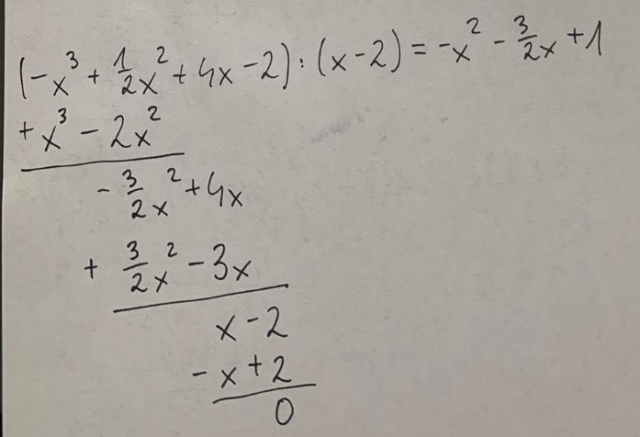 (-x³ + 1/2x² + 4x - 2) : (x - 2) = -x² - 3/2x + 1
+x³ - 2x²
- 3/2x² + 4x
+ 3/2x² - 3x
x - 2
- x + 2
0